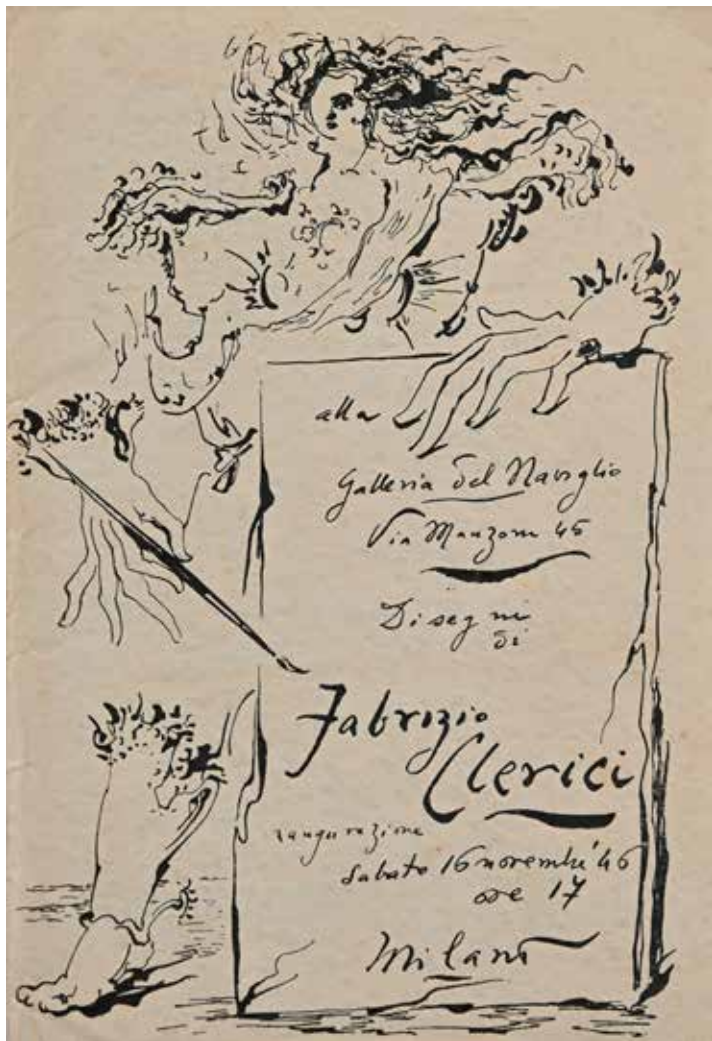 alla
Galleria del Naviglio
Via Manzoni 45
Disegni
di
Fabrizio
Clerici
inaugurazione
Sabato 16 novembre '46
ore 17
Milano